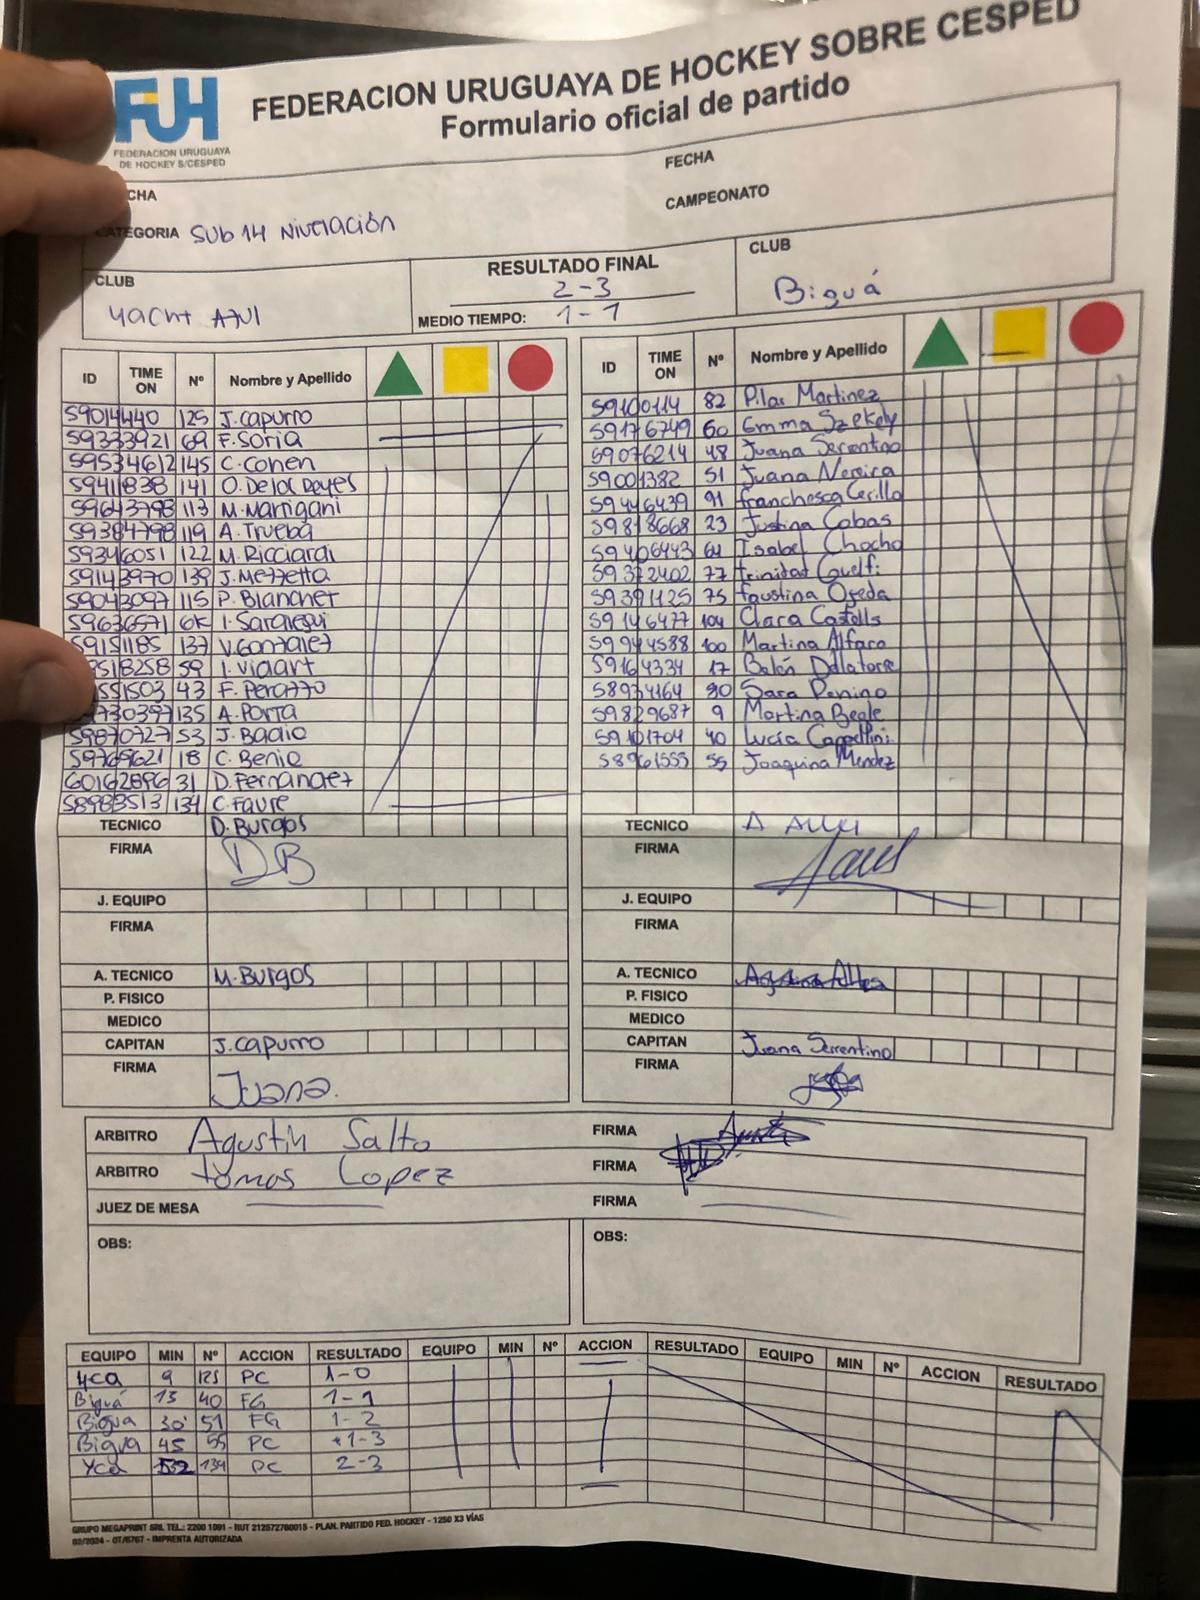 FUH
FEDERACION URUGUAYA
DE HOCKEY S/CESPED
FEDERACION URUGUAYA DE HOCKEY SOBRE CESPED
Formulario oficial de partido
CHA
FECHA
CATEGORIA Sub 14 Nivelación
CAMPEONATO
CLUB
Yacht Azul
RESULTADO FINAL
2-3
MEDIO TIEMPO: 1-1
CLUB
Biguá
ID TIME ON Nº Nombre y Apellido
59014440 125 J. Capurro
59333921 69 F. Soria
59534612 145 C. Cohen
59411838 141 O. De los Reyes
59643798 113 M. Marrigani
59384798 119 A. Trueba
59346051 122 M. Ricciardi
59143970 139 J. Mezzetta
59043097 115 P. Blanchet
59636571 6K I. Saralegui
59151185 137 V. Gonzalez
518258 59 I. Vidart
551503 43 F. Perazzo
730397 135 A. Porta
59870727 53 J. Badio
59769621 18 C. Benia
60162896 31 D. Fernandez
58983513 134 C. Faure
TECNICO D. Burgos
FIRMA DB
J. EQUIPO
FIRMA
A. TECNICO M. Burgos
P. FISICO
MEDICO
CAPITAN J. Capurro
FIRMA Juana.
ID TIME ON Nº Nombre y Apellido
59100114 82 Pilar Martinez
59176749 60 Emma Szekely
59076214 48 Juana Serrentino
59001382 51 Juana Nereira
59446439 91 Franchesca Cerillo
59818668 23 Justina Cobas
59406443 64 Isabel Chocho
59372402 77 Trinidad Guelfi
59391425 75 Faustina Ojeda
59146477 104 Clara Castells
59944588 100 Martina Alfaro
59164334 17 Belén Dalatorre
58934164 90 Sara Penino
59829687 9 Martina Beale
59101704 40 Lucía Cappellini
58961555 55 Joaquina Mendez
TECNICO
FIRMA
J. EQUIPO
FIRMA
A. TECNICO
P. FISICO
MEDICO
CAPITAN Juana Serrentino
FIRMA
ARBITRO Agustin Salto FIRMA
ARBITRO Tomas Lopez FIRMA
JUEZ DE MESA FIRMA
OBS: OBS:
EQUIPO MIN Nº ACCION RESULTADO EQUIPO MIN Nº ACCION RESULTADO EQUIPO MIN Nº ACCION RESULTADO
Yca 9 125 PC 1-0
Biguá 13 40 FG 1-1
Bigua 30' 51 FG 1-2
Bigua 45 55 PC 1-3
Yca 52 139 PC 2-3
GRUPO MEGAPRINT SRL TEL.: 2200 1091 - RUT 212572760015 - PLAN. PARTIDO FED. HOCKEY - 1250 X3 VÍAS
02/2024 - OT/6767 - IMPRENTA AUTORIZADA